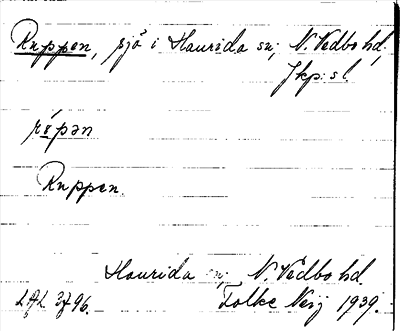 Ruppen, sjö i Haurida sn; N. Vedbo hd,
Jkp: sl.
Ruppen.
Haurida sn; N. Vedbo hd.
Folke Nerj 1939.